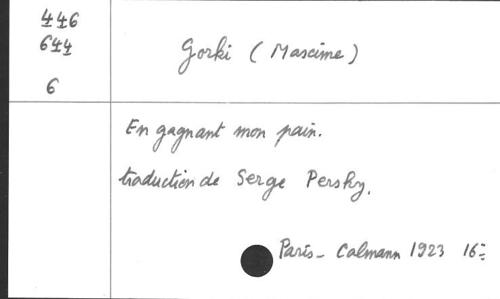 446
644
6
Gorki (Maxime)
En gagnant mon pain.
traduction de Serge Persky.
Paris - Calmann 1923 16°